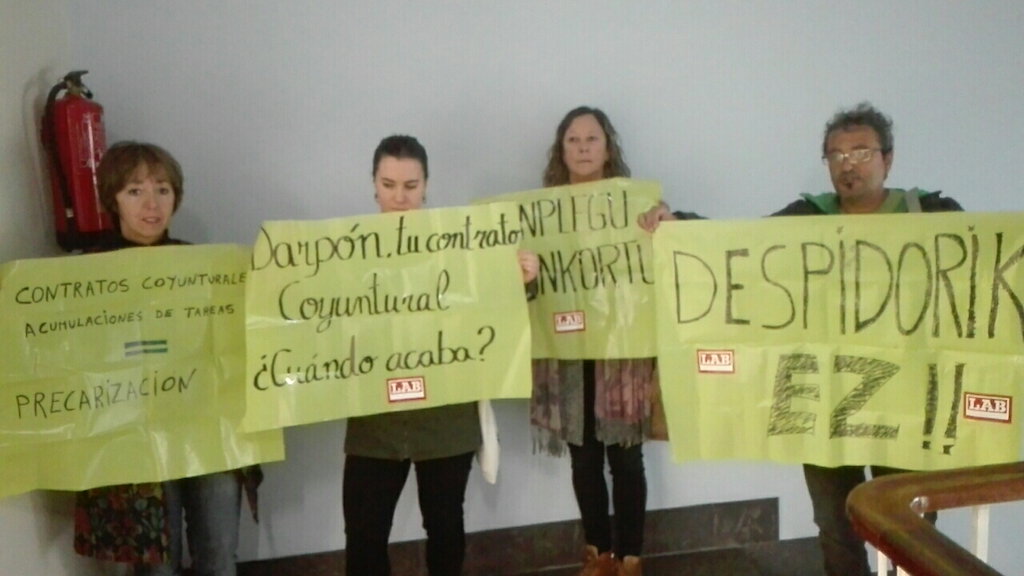 CONTRATOS COYUNTURALE
ACUMULACIONES DE TAREAS
=
PRECARIZACION
Darpón, tu contrato
Coyuntural
¿Cuándo acaba?
LAB
NPLEGU
NKORTU
LAB
DESPIDORIK
EZ!!
LAB
LAB